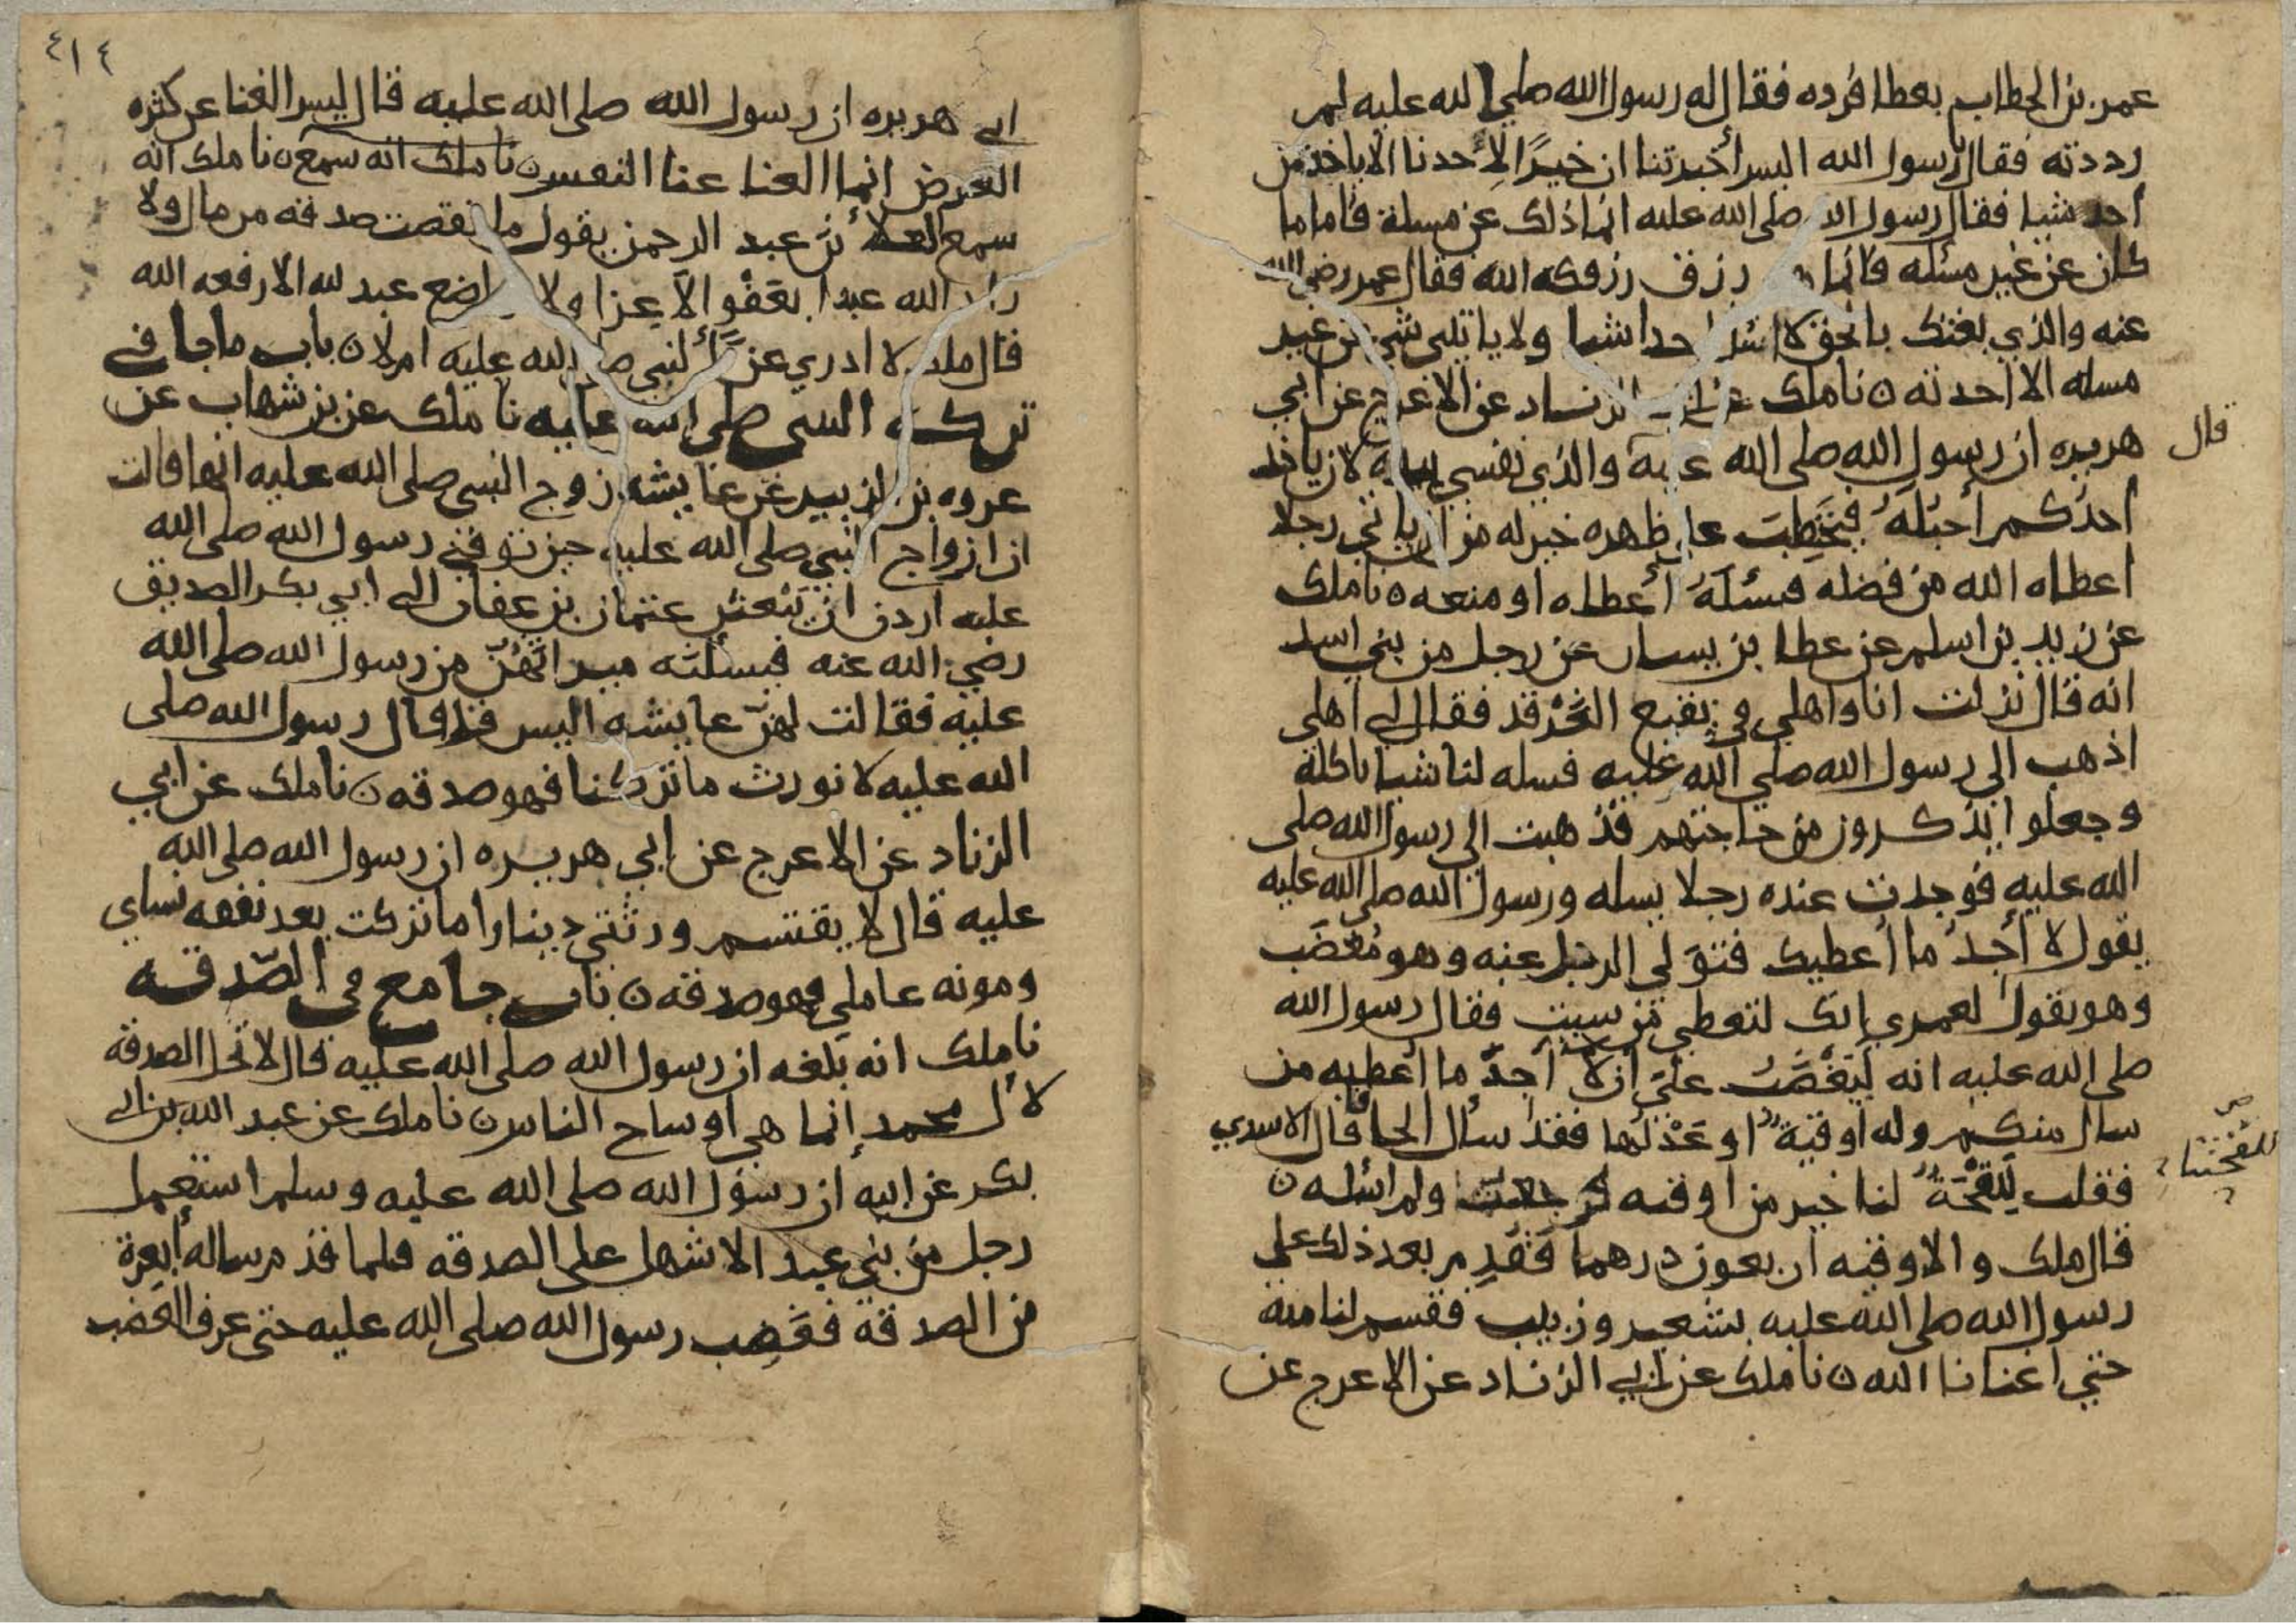 عمر بن الخطاب بعطا فرده فقال له رسول الله صلى الله عليه لم
رددته فقال يا رسول الله اليس أخبرتنا ان خيرًا لأحدنا الا ياخذ من
أحد شيا فقال رسول الله صلى الله عليه انما ذلك عن مسلة فاما ما
كان عن غير مسئله فانما هو رزق رزقكه الله فقال عمر رضي الله
عنه والذي بعثك بالحق لا اسئل احدا شيا ولا ياتيني شي من غير
مسله الا اخذته ن نا ملك عن ابي الزناد عن الاعرج عن ابي
هريره ان رسول الله صلى الله عليه والذي نفسي بيده لان ياخذ
قال
أحدكم أحبُلَهُ فيحَتطِبَ على ظهره خير له من ان ياتي رجلا
اعطاه الله من فضله فيسئلَهُ أعطاه او منعه ن نا ملك
عن زيد بن اسلم عن عطا بن يسار عن رجل من بني اسد
انه قال نزلت انا واهلي في بقيع الغَرْقد فقال لي اهلي
اذهب الى رسول الله صلى الله عليه فسله لنا شيا ناكله
وجعلوا يذكرون من حاجتهم فذهبت الى رسول الله صلى
الله عليه فوجدت عنده رجلا يسله ورسول الله صلى الله عليه
يقول لا أجدُ ما أعطيك فتوَلى الرجل عنه وهو مُغضَب
وهو يقول لعمري إنك لتعطي من شيت فقال رسول الله
صلى الله عليه انه ليَغْضَبُ عليَّ أن لا أجدَ ما أعطيه من
سال منكم وله أوقيةٌ او عَدْلُها فقد سأل الحافا قال الاسدي
فقلت لِلَقْحَةٌ لنا خير من اوقيه فرجعت ولم اسئله ن
للقحتنا
قال ملك والاوقيه اربعون درهما فقَدِم بعد ذلك على
رسول الله صلى الله عليه بشعير وزبيب فقسم لنا منه
حتي اغنانا الله ن نا ملك عن ابي الزناد عن الاعرج عن
٤١٤
ابي هريره ان رسول الله صلى الله عليه قال ليس الغنا عن كثره
العرض انما الغنا غنا النفس ن نا ملك انه سمع ن نا ملك انه
سمع العلأ بن عبد الرحمن يقول ما نقصت صدقه من مال ولا
زاد الله عبدا بعَفْو الا عِزا ولا تواضع عبد لله الا رفعه الله
قال ملك لا ادري عن النبي صلى الله عليه ام لا ن باب ما جا في
تركه النبي صلى الله عليه نا ملك عن بن شهاب عن
عروه بن الزبير عن عايشه زوج النبي صلى الله عليه انها قالت
ان ازواج النبي صلى الله عليه حين توفي رسول الله صلى الله
عليه اردن ان يَبْعثن عثمان بن عفان الى ابي بكر الصديق
رضي الله عنه فيسئلنه ميراثهُنّ من رسول الله صلى الله
عليه فقالت لهنّ عايشه اليس قد قال رسول الله صلى
الله عليه لا نورث ما تركنا فهو صدقه ن نا ملك عن ابي
الزناد عن الاعرج عن ابي هريره ان رسول الله صلى الله
عليه قال لا يقتسم ورثتي دينارا ما تركت بعد نفقه نساي
ومونه عاملي فهو صدقه ن باب جامع في الصّدقه
نا ملك انه بلغه ان رسول الله صلى الله عليه قال لا تحل الصدقه
لأل محمد إنما هي اوساخ الناس ن نا ملك عن عبد الله بن ابي
بكر عن ابيه ان رسول الله صلى الله عليه وسلم استعمل
رجل من بني عبد الاشهل على الصدقه فلما قدم ساله أبعرة
من الصدقة فغَضِب رسول الله صلى الله عليه حتى عرف الغضب